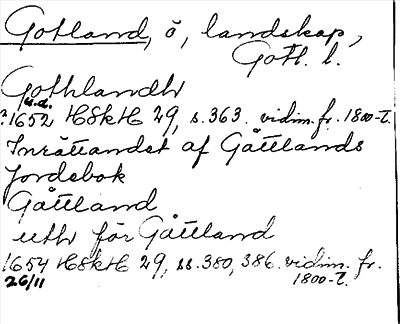 Gotland, ö, landskap,
Gotl. l.
Gothlandh
u.d.
1652 HSkH 29, s. 363. vidim. fr. 1800-t.
Inrättandet af Gåttlands
Jordebok
Gåttland
uth för Gåttland
1654 HSkH 29, ss. 380, 386. vidim. fr.
26/11 1800-t.